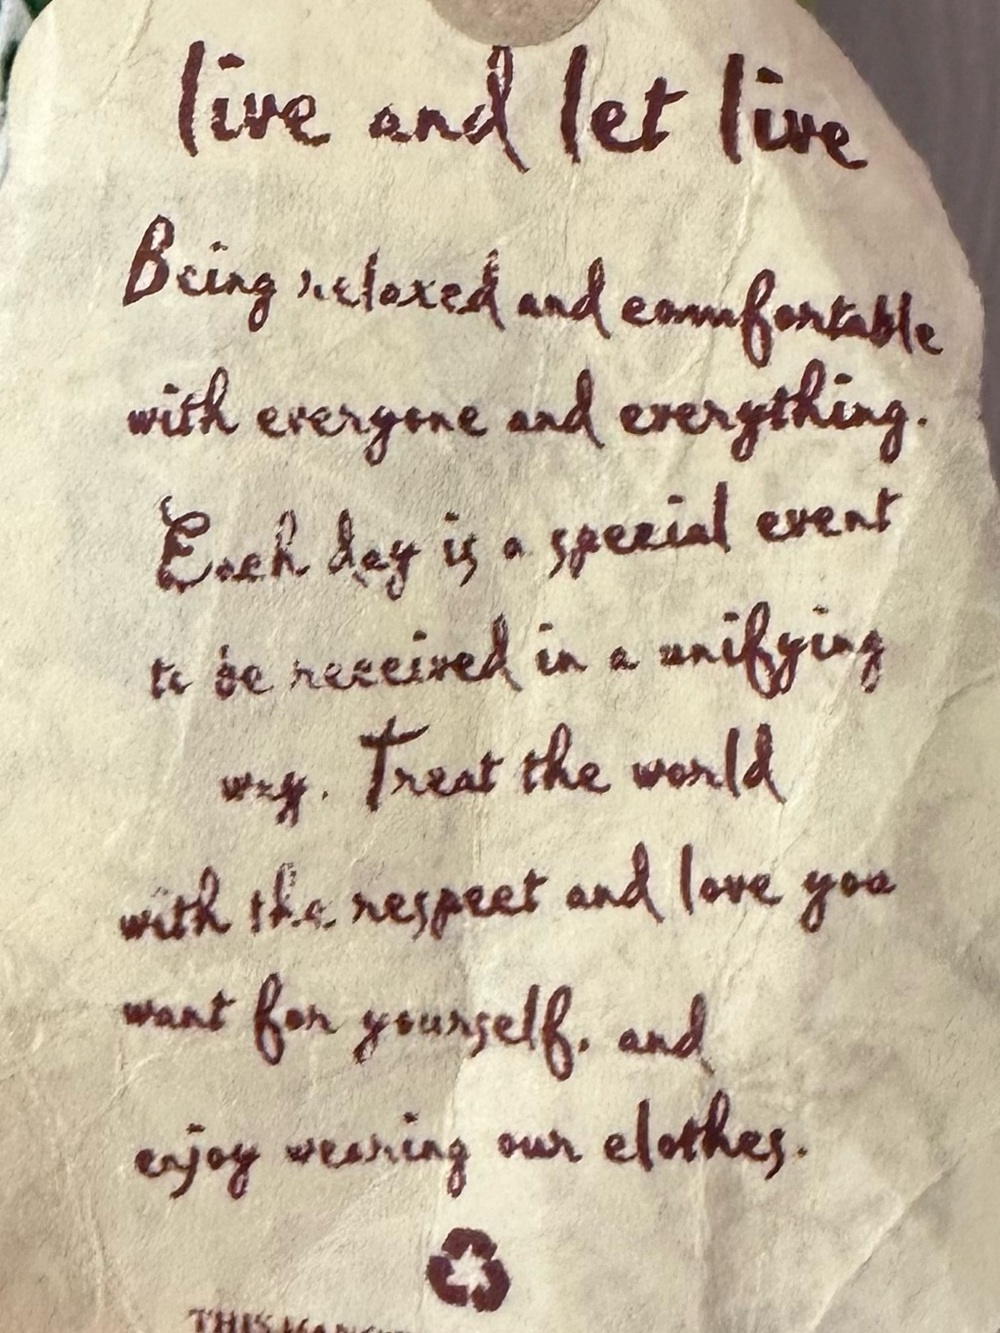 live and let live
Being relaxed and comfortable
with everyone and everything.
Each day is a special event
to be received in a unifying
way. Treat the world
with the respect and love you
want for yourself, and
enjoy wearing our clothes.
THIS